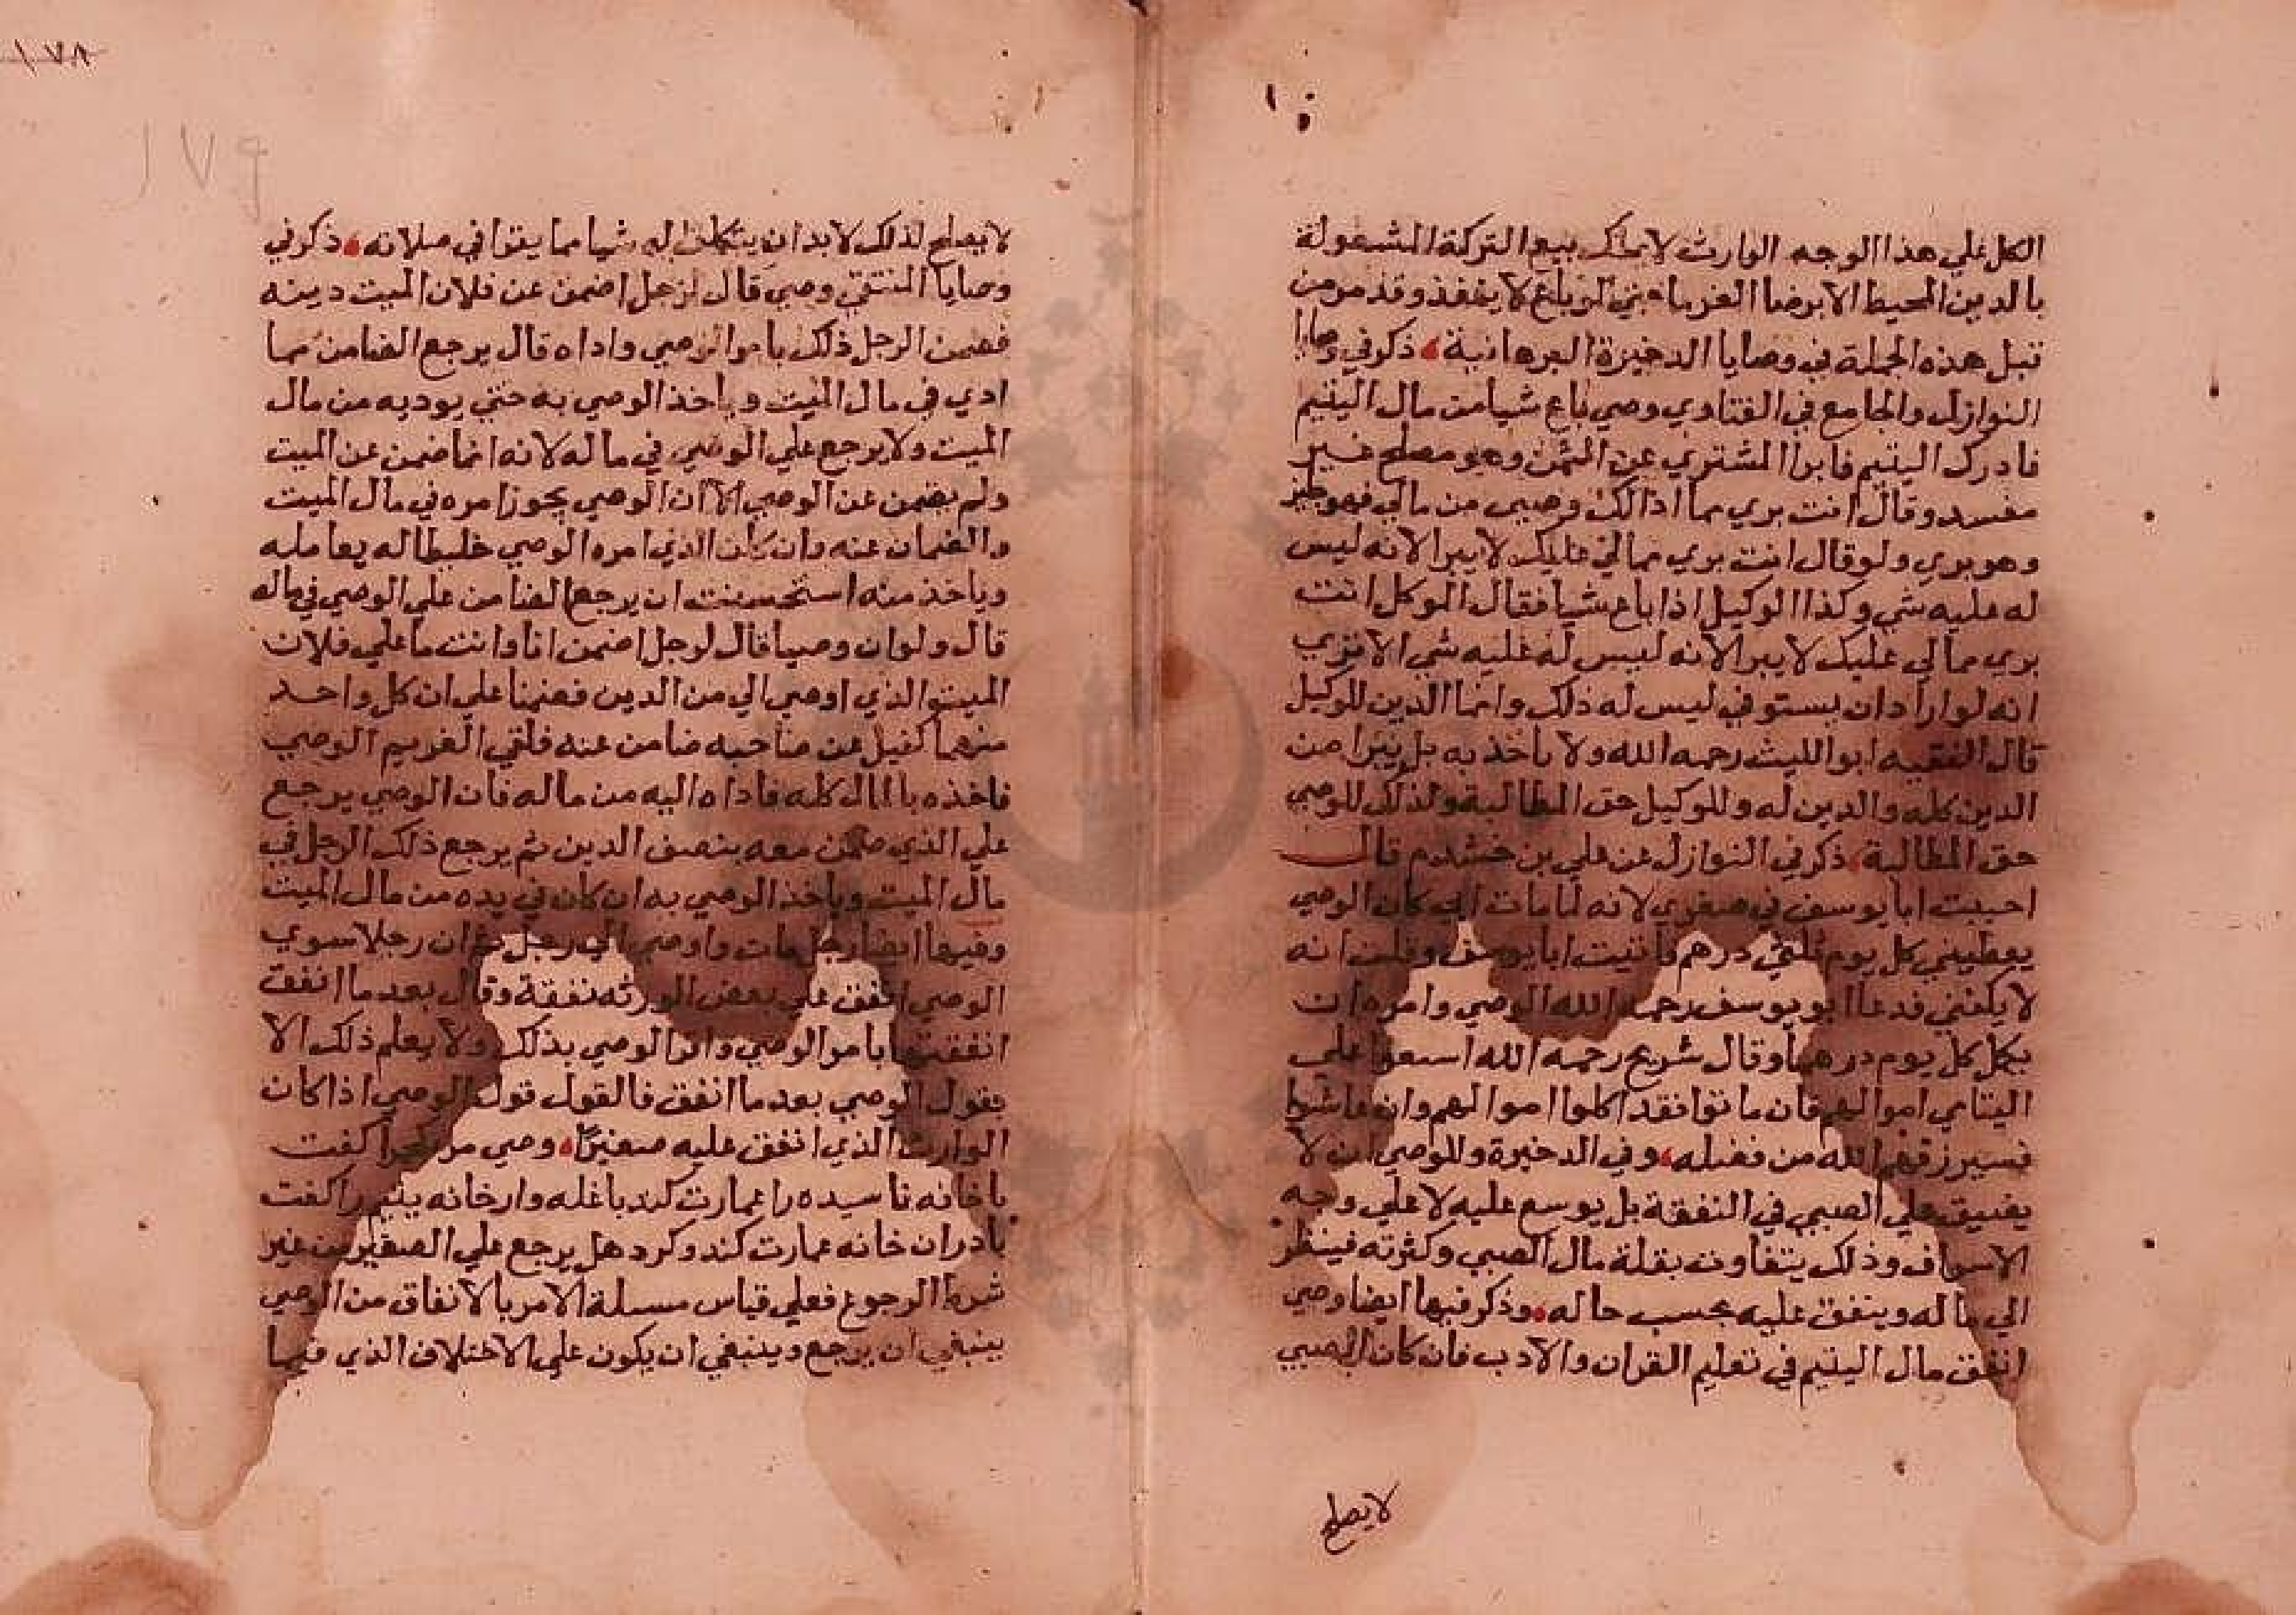 الكل علي هذا الوجه الوارث لا يملك بيع التركة المشغولة
بالدين المحيط الا برضا الغرما حتي لو باع لا ينفذ وقد مر من
قبل هذه الجملة في وصايا الدخيرة البرهانية ذكر في وصايا
النوازل والجامع في الفتاوي وصي باع شيا من مال اليتيم
فادرك اليتيم فابرا المشتري عن الثمن وهو مصلح غير
مفسد وقال انت بري مما اذالك وصيي من مالي فهو جايز
وهو بري ولو قال انت بري مما لي عليك لا يبرا لانه ليس
له عليه شي وكذا الوكيل اذا باع شيا فقال الموكل انت
بري مما لي عليك لا يبرا لانه ليس له عليه شي الا تري
انه لو اراد ان يستوفي ليس له ذلك وانما الدين للوكيل
قال الفقيه ابو الليث رحمه الله ولا ناخذ به بل يبرا من
الدين كله والدين له وللوكيل حق المطالبة ولذلك للوصي
حق المطالبة ذكر في النوازل عن علي بن خشرم قال
احببت ابا يوسف في صغري لانه لما مات ابي كان الوصي
يعطيني كل يوم ثلثي درهم فاتيت ابا يوسف وقلت انه
لا يكفني فدعا ابو يوسف رحمه الله الوصي وامره ان
يجعل كل يوم درهما وقال شريح رحمه الله اسبغوا علي
اليتامي اموالهم فان ماتوا فقد اكلوا اموالهم وان عاشوا
فسيرزقهم الله من فضله وفي الدخيرة وللوصي ان لا
يضيق علي الصبي في النفقة بل يوسع عليه لا علي وجه
الاسراف وذلك يتفاوت بقلة مال الصبي وكثرته فينظر
الي ماله وينفق عليه بحسب حاله وذكر فيها ايضا وصي
انفق مال اليتيم في تعليم القران والادب فان كان الصبي
لا يصلح
١٧٨
١٧٩
لا يصلح لذلك لا بد ان يتكلف له شيا مما يقرا في صلاته ذكر في
وصايا المنتقي وصي قال لرجل اضمن عن فلان الميت دينه
فضمن الرجل ذلك بامر الوصي واداه قال يرجع الضامن مما
ادي في مال الميت وياخذ الوصي به حتي يوديه من مال
الميت ولا يرجع علي الوصي في ماله لانه انما ضمن عن الميت
ولم يضمن عن الوصي الا ان الوصي يجوز امره في مال الميت
والضمان عنه وان كان الذي امره الوصي خليطا له يعامله
وياخذ منه استحسنت ان يرجع الضامن علي الوصي في ماله
قال ولو ان وصيا قال لرجل اضمن انا وانت ما علي فلان
الميت الذي اوصي الي من الدين فضمنا علي ان كل واحد
منهما كفيل عن صاحبه ضامن عنه فلقي الغريم الوصي
فاخذه بالمال كله فاداه اليه من ماله فان الوصي يرجع
علي الذي ضمن معه بنصف الدين ثم يرجع ذلك الرجل في
مال الميت وياخذ الوصي به ان كان في يده من مال الميت
وفيها ايضا رجل مات واوصي الي رجل ثم ان رجلا سوي
الوصي انفق علي بعض الورثه نفقة وقال بعد ما انفق
انفقتها بامر الوصي واقر الوصي بذلك ولا يعلم ذلك الا
بقول الوصي بعد ما انفق فالقول قول الوصي اذا كان
الوارث الذي انفق عليه صغيرا وصي مر كفت
با خانه نا سيده را عمارت كند با غله وار خانه يتيم را كفت
بادران خانه عمارت كند وكرد هل يرجع علي الصغير من غير
شرط الرجوع فعلي قياس مسلة الامر بالانفاق من الوصي
ينبغي ان يرجع وينبغي ان يكون علي الاختلاف الذي فيما